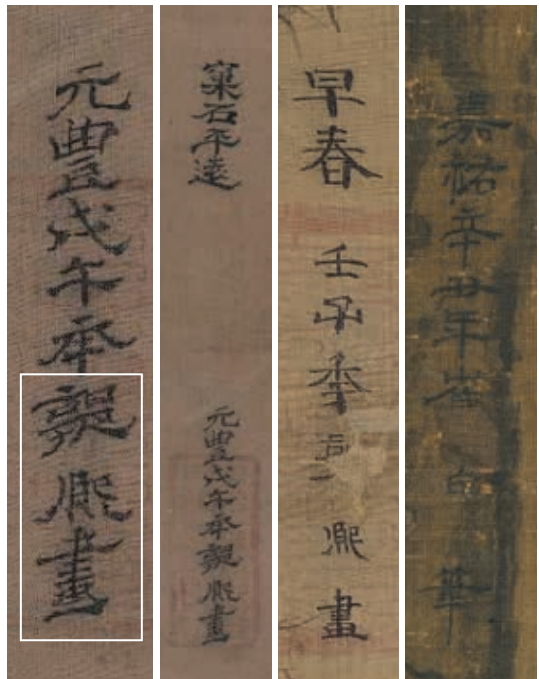 元豐戊午年郭熙畫
窠石平遠
元豐戊午年郭熙畫
早春
壬子年郭熙畫
嘉祐辛丑年崔白筆